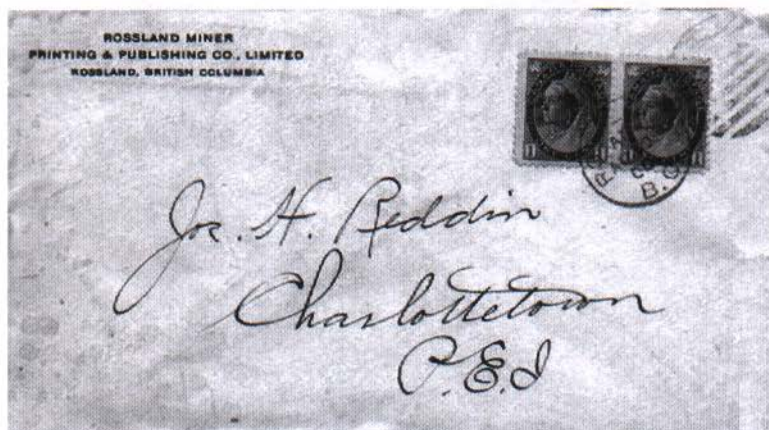 ROSSLAND MINER
PRINTING & PUBLISHING CO., LIMITED
ROSSLAND, BRITISH COLUMBIA
1 1 1
B.C
Jos. H. Reddin
Charlottetown
P.E.I